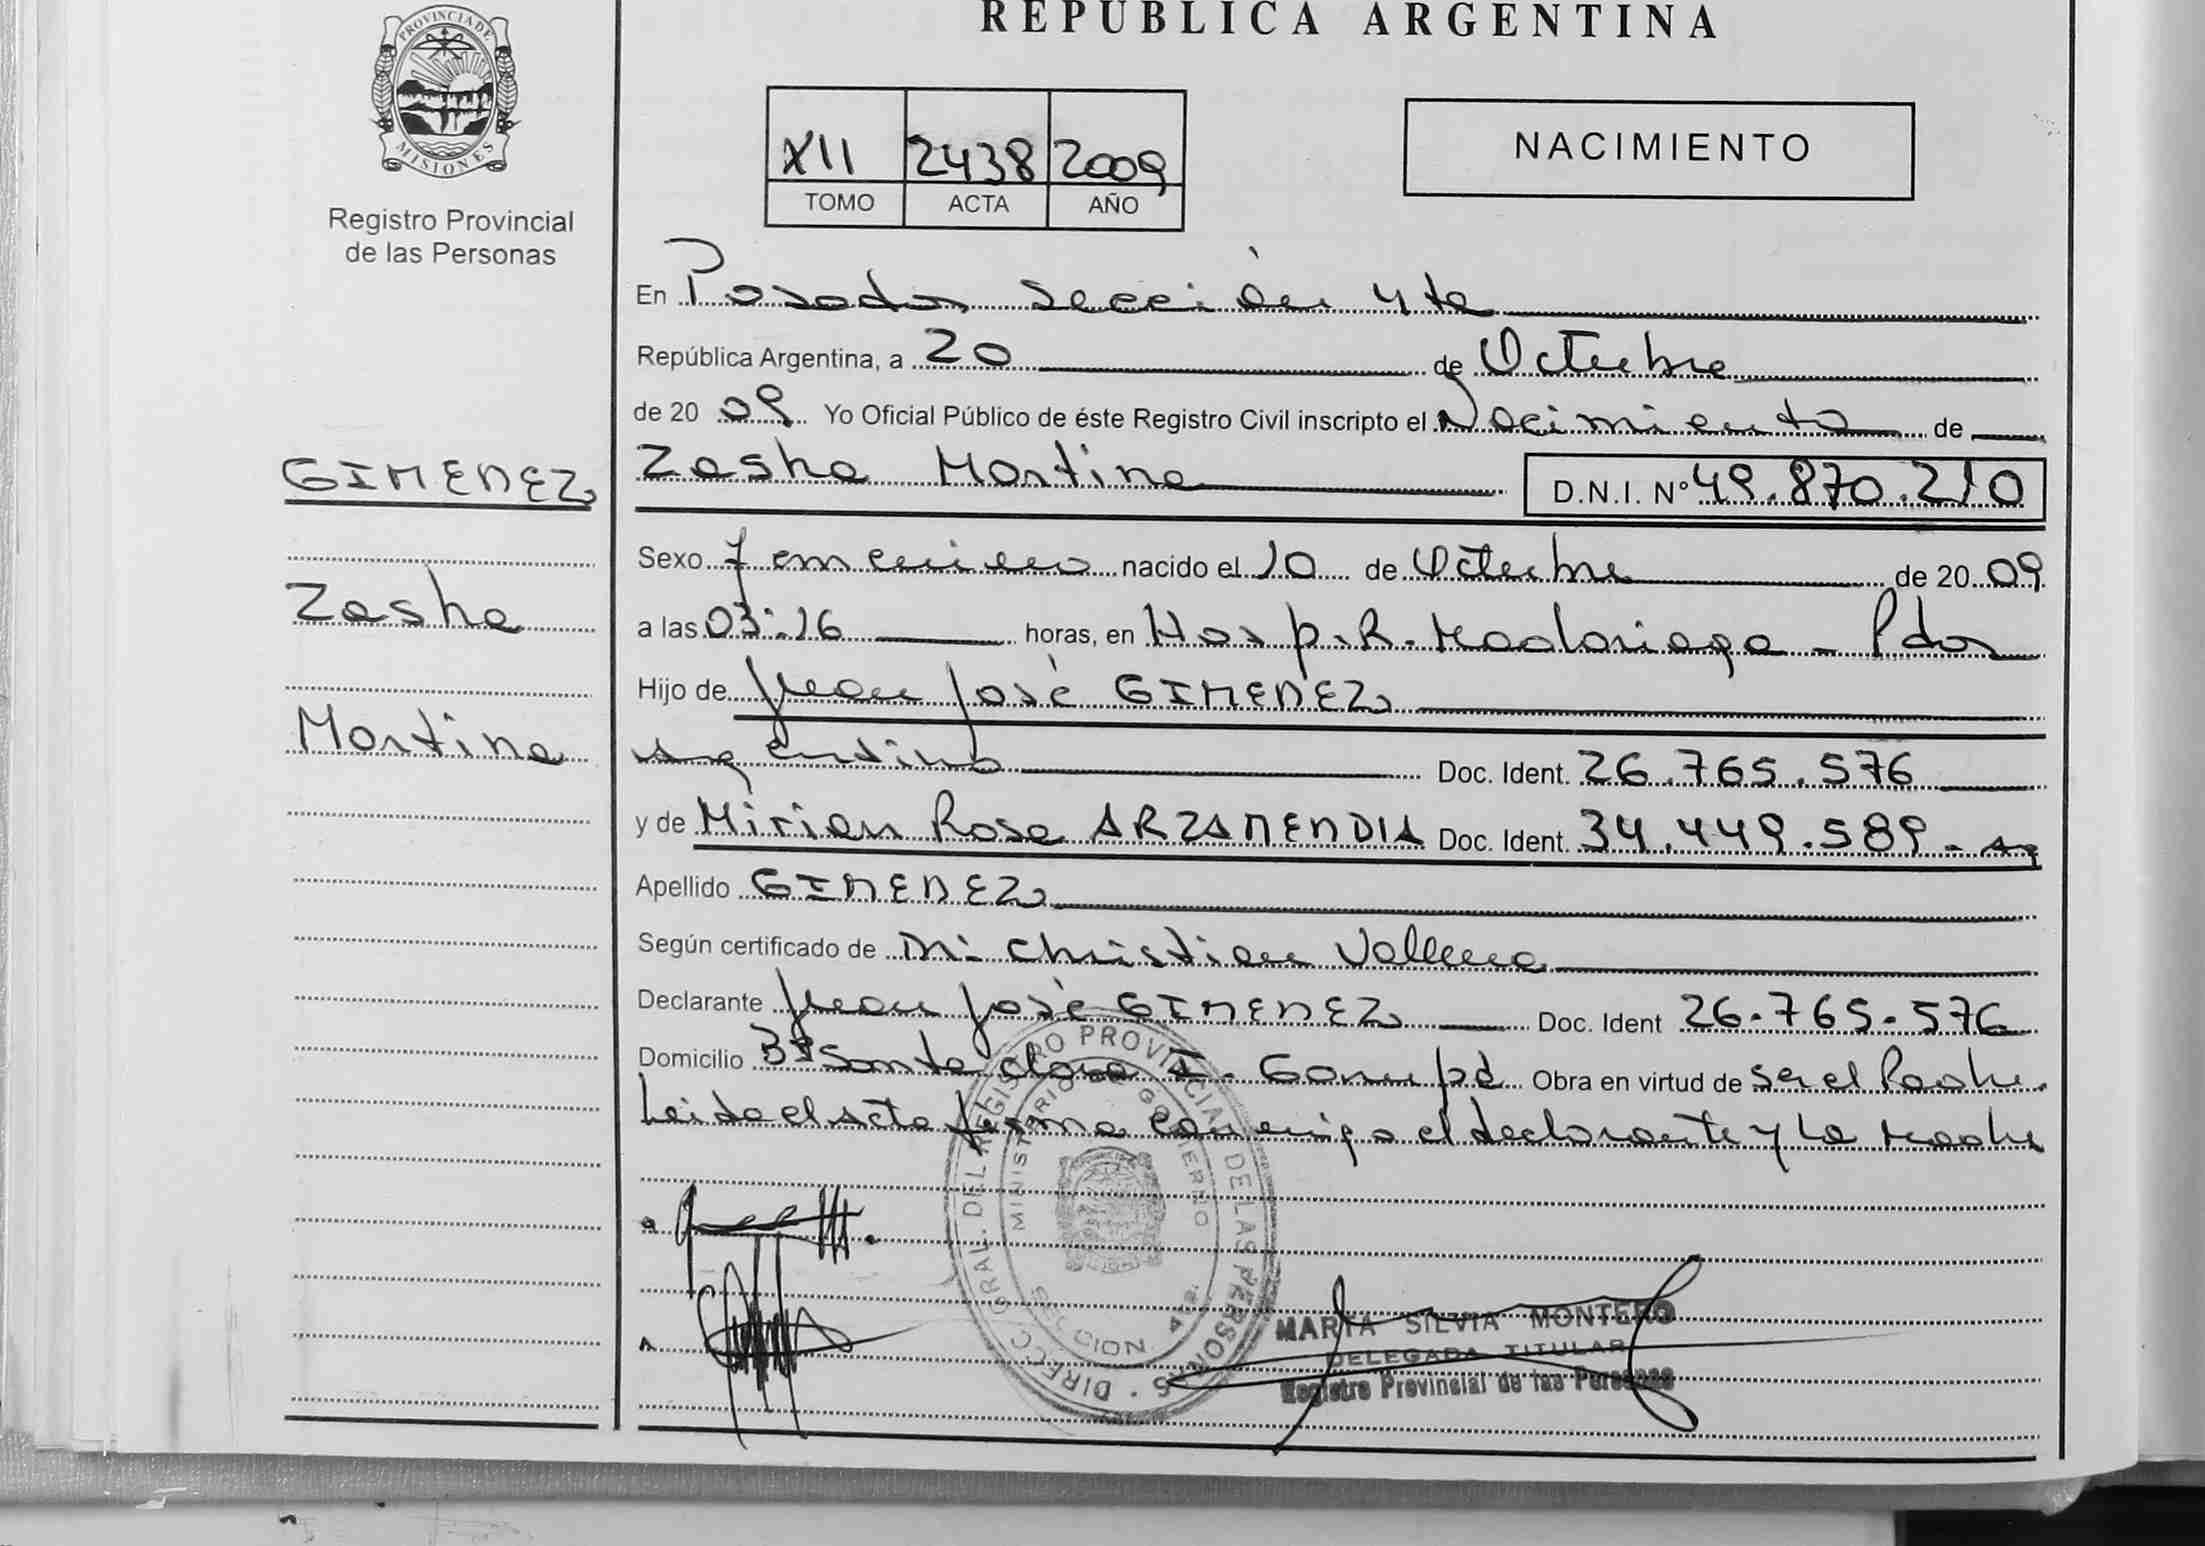 REPÚBLICA ARGENTINA
PROVINCIA DE
MISIONES
Registro Provincial
de las Personas
XII 2438 2009
TOMO ACTA AÑO
NACIMIENTO
En Posadas Sección 4ta
República Argentina, a 20 de Octubre
de 20 09 Yo Oficial Público de éste Registro Civil inscripto el Nacimiento de
GIMENEZ
Zasha Martina D.N.I. Nº 49.870.210
Sexo Femenino nacido el 10 de Octubre de 20 09
Zasha
a las 03:16 horas, en Hosp. R. Madariaga - Pdas
Hijo de Juan José GIMENEZ
Martina
Argentino Doc. Ident. 26.765.576
y de Mirian Rosa ARZAMENDIA Doc. Ident. 34.449.589 - Arg
Apellido GIMENEZ
Según certificado de Christian
Declarante Juan José GIMENEZ Doc. Ident 26.765.576
Domicilio Santa Clara I - Garupá Obra en virtud de ser el Padre.
Leida el acta firma conmigo el declarante y La Madre
DIRECC. GRAL. DEL REGISTRO PROVINCIAL DE LAS PERSONAS
MINISTERIO DE GOBIERNO
SECCION 4ta.
MARTA SILVIA MONTERO
DELEGADA TITULAR
Registro Provincial de las Personas